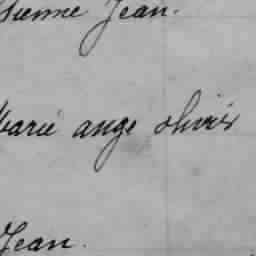 sienne Jean.
Marie ange olivier
Jean.